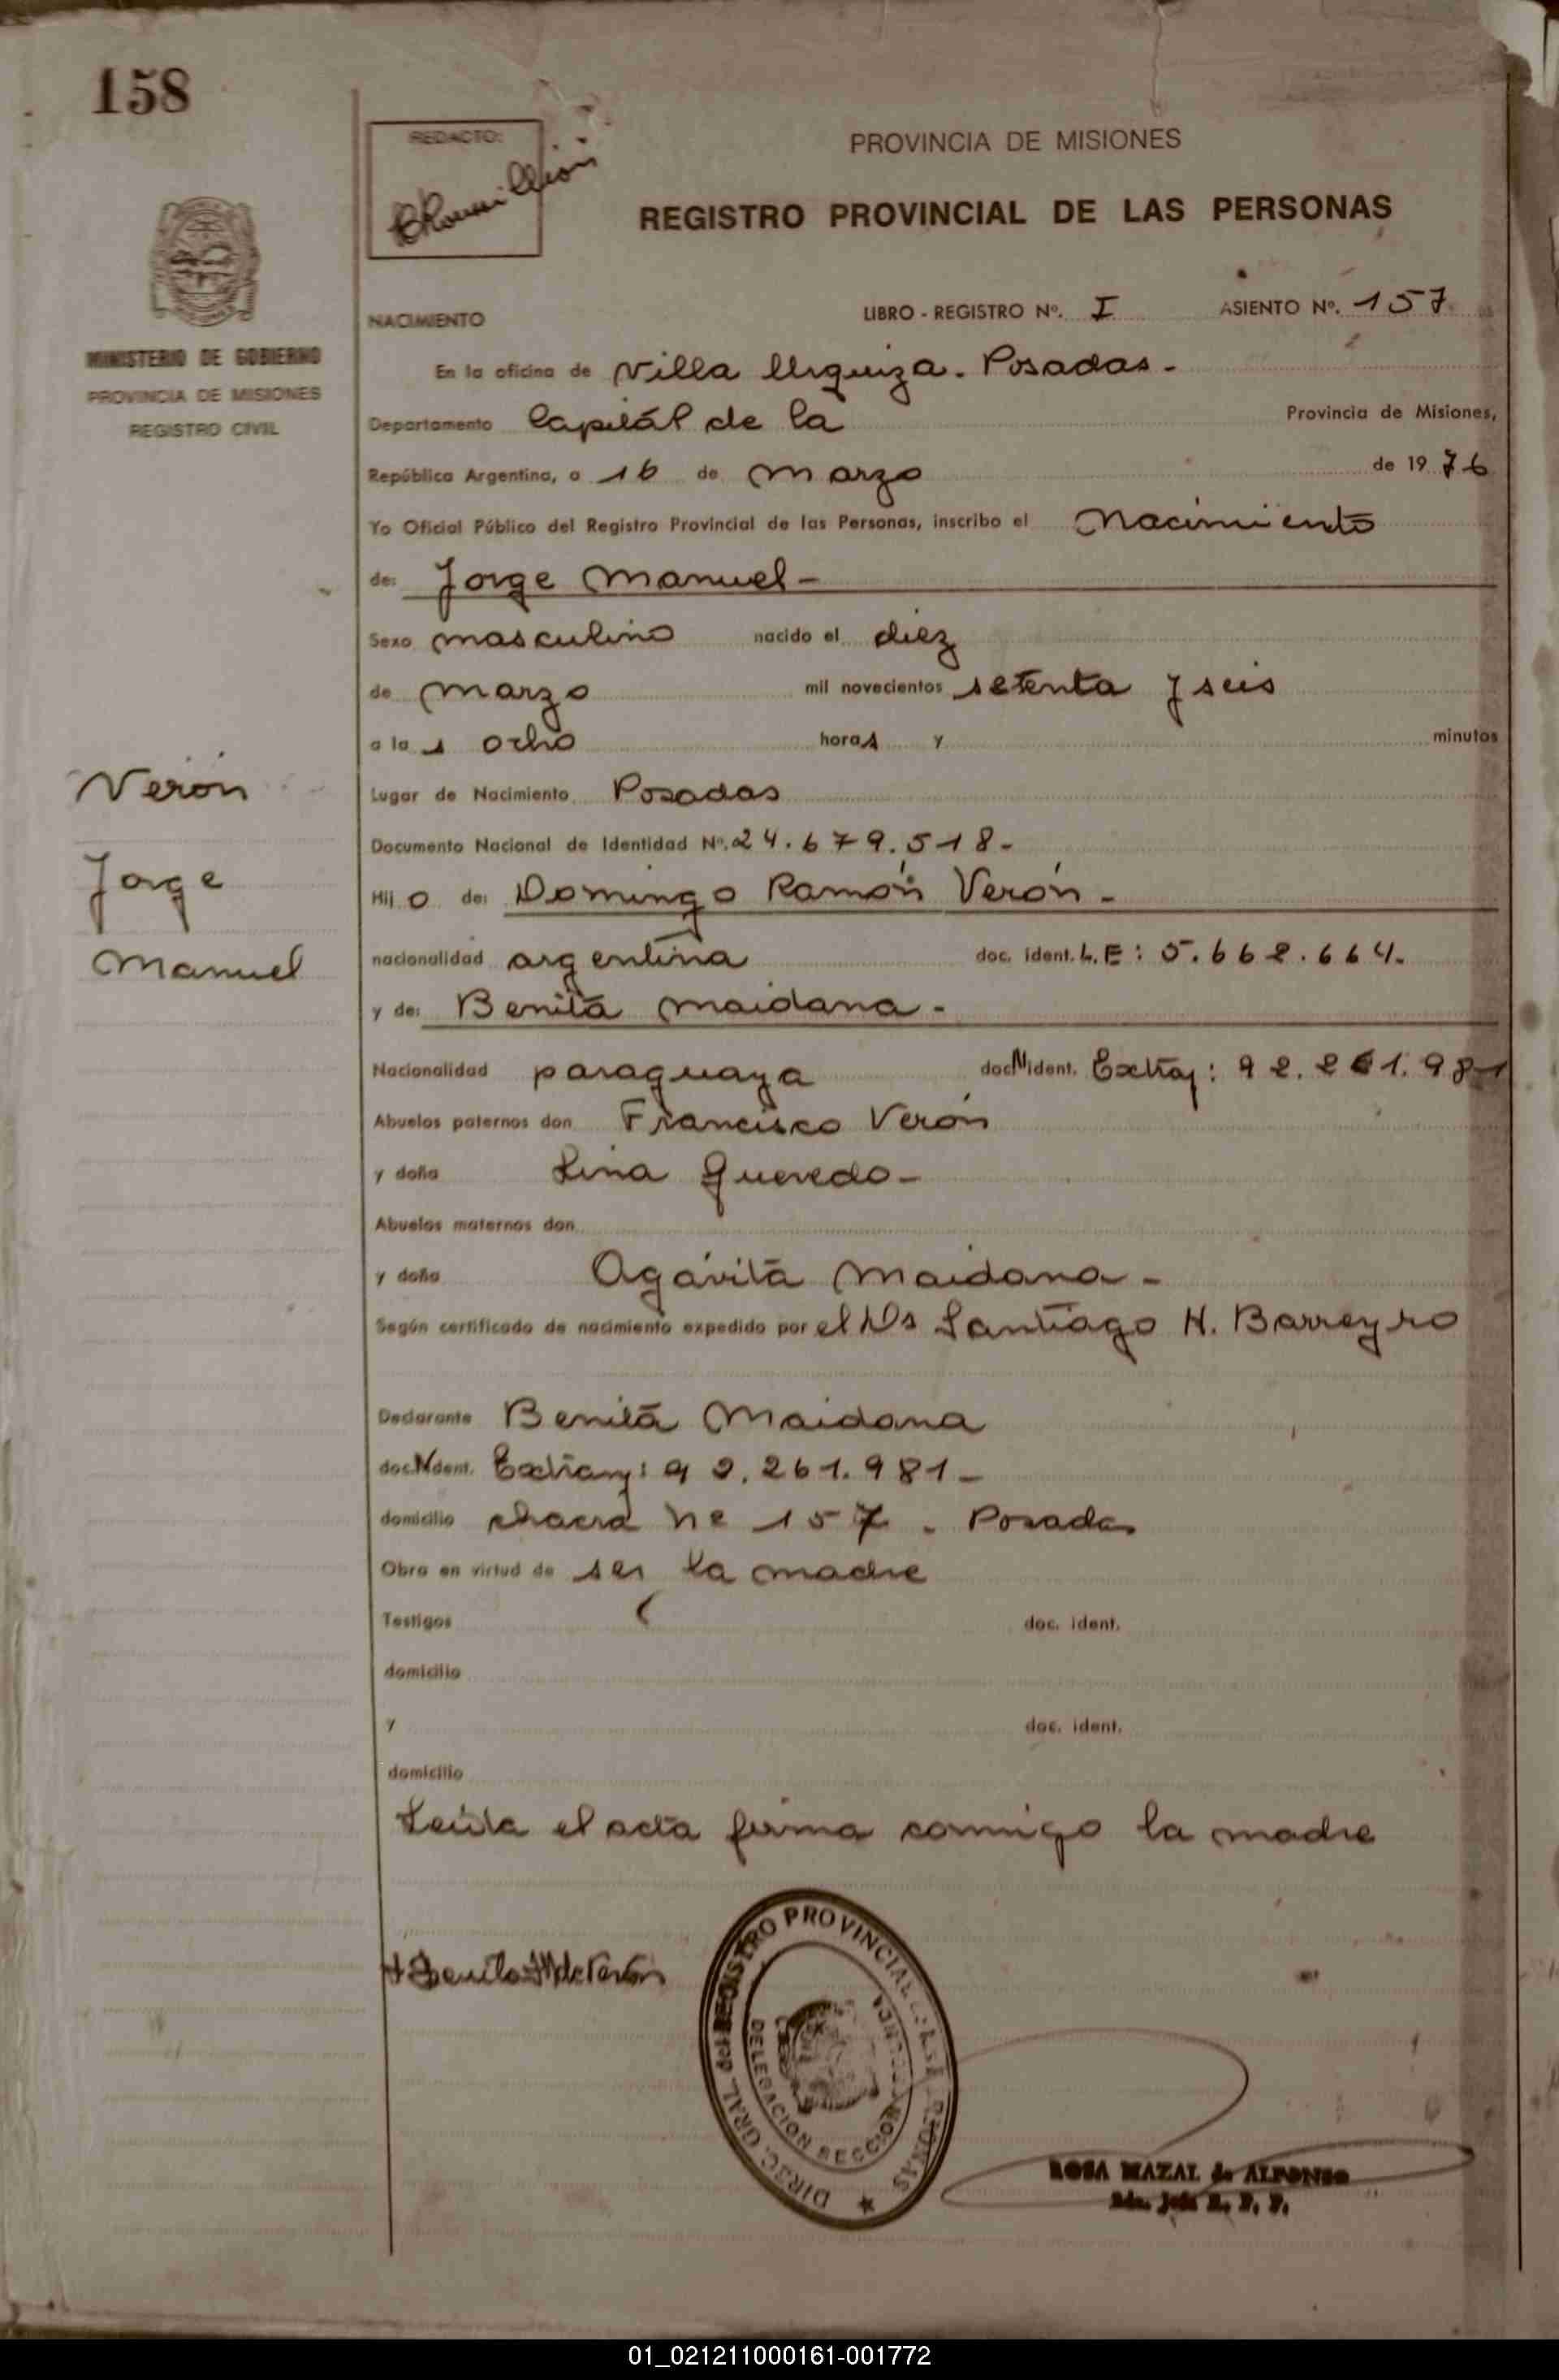 158
REDACTO:
PROVINCIA DE MISIONES
REGISTRO PROVINCIAL DE LAS PERSONAS
MINISTERIO DE GOBIERNO
PROVINCIA DE MISIONES
REGISTRO CIVIL
NACIMIENTO LIBRO - REGISTRO Nº. I ASIENTO Nº. 157
En la oficina de Villa Urquiza. Posadas.-
Departamento Capitál de la Provincia de Misiones,
República Argentina, a 16 de marzo de 1976
Yo Oficial Público del Registro Provincial de las Personas, inscribo el Nacimiento
de: Jorge Manuel-
Sexo masculino nacido el diez
de marzo mil novecientos setenta y seis
a las ocho horas y minutos
Verón
Jorge
Manuel
Lugar de Nacimiento Posadas
Documento Nacional de Identidad Nº. 24.679.518-
Hijo de: Domingo Ramón Verón-
nacionalidad argentina doc. ident. L.E: 5.662.664.
y de: Benita Maidana-
Nacionalidad paraguaya doc N ident. Extraj: 92.261.981
Abuelos paternos don Francisco Verón
y doña Lina Quevedo-
Abuelos maternos don
y doña Agávita Maidana-
Según certificado de nacimiento expedido por el Ds Santiago H. Barreyro
Declarante Benita Maidana
doc. N ident. Extranj: 92.261.981-
domicilio chacra Nº 157. Posadas
Obra en virtud de ser la madre
Testigos doc. ident.
domicilio
y doc. ident.
domicilio
Leída el acta firma conmigo la madre
DIREC. GRAL. del REGISTRO PROVINCIAL DE LAS PERSONAS
DELEGACION SECCION
ROSA MAZAL de ALFONSO
01_021211000161-001772